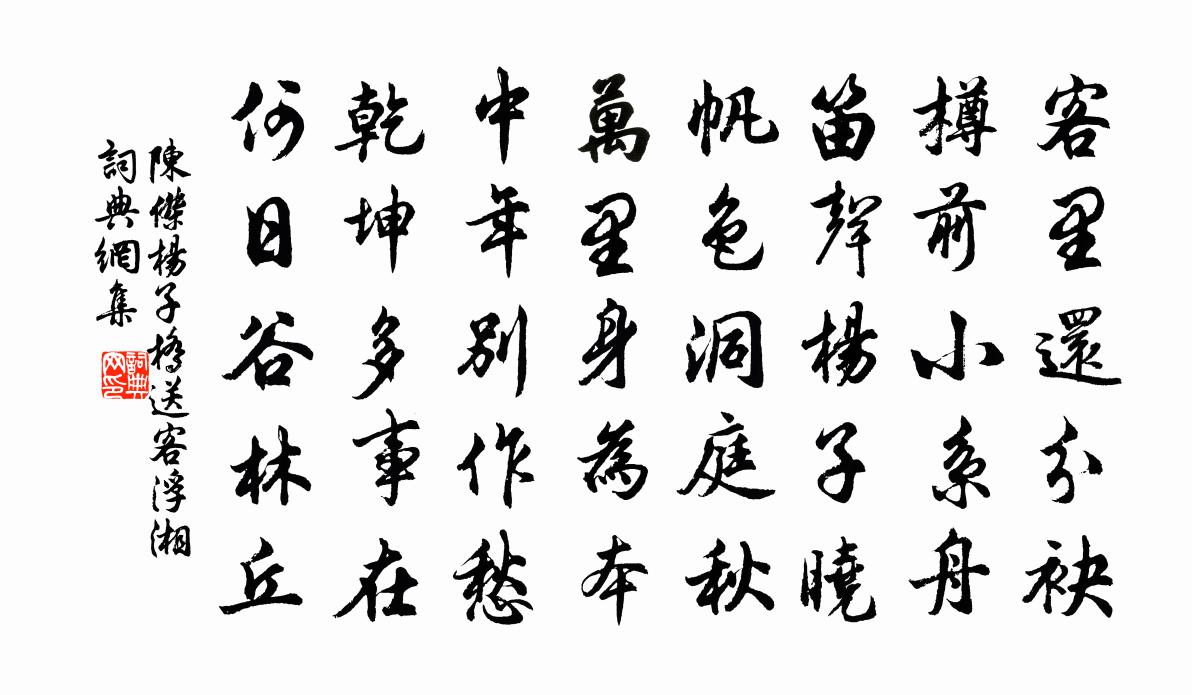 客里還分袂
樽前小系舟
笛聲楊子曉
帆色洞庭秋
萬里身為本
中年別作愁
乾坤多事在
何日谷林丘
陳傑楊子橋送客浮湘
詞典網集
詞典网印